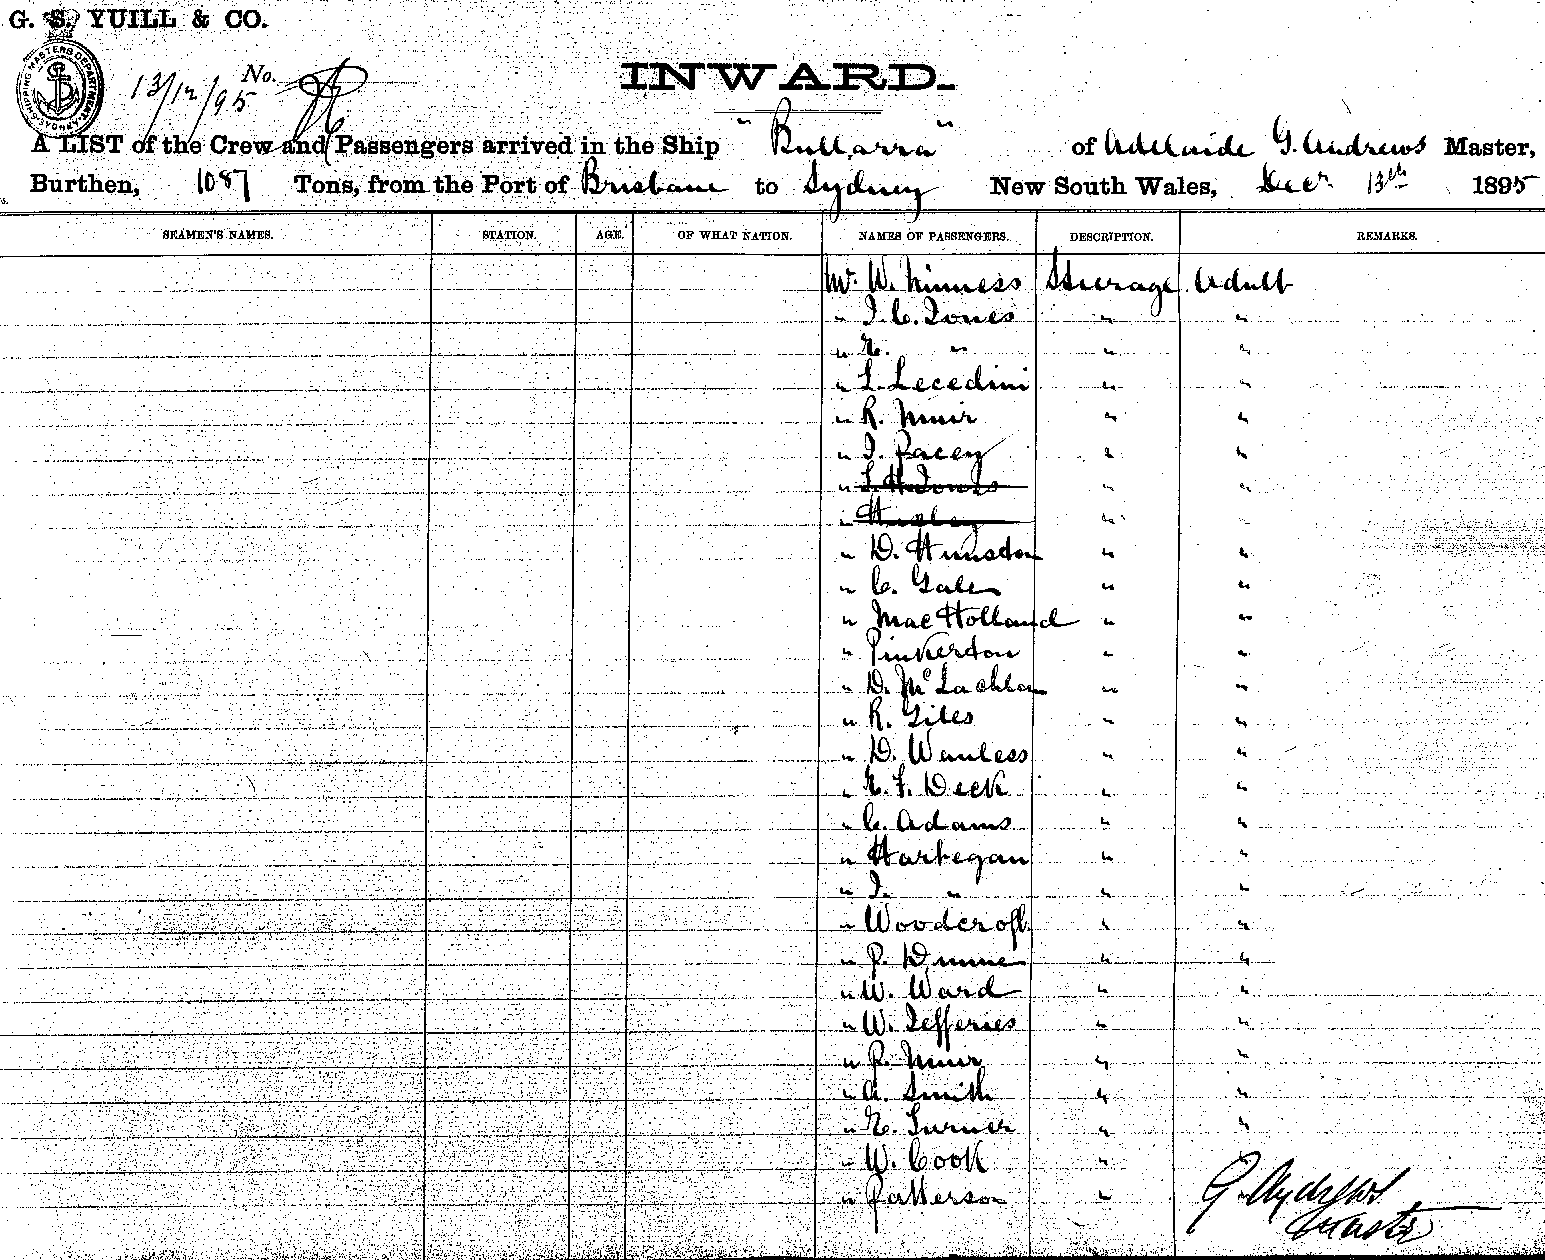 G. S. YUILL & CO.
13/12/95 No.
INWARD.
A LIST of the Crew and Passengers arrived in the Ship "Bullarra" of Adelaide G. Andrews Master,
Burthen, 1087 Tons, from the Port of Brisbane to Sydney New South Wales, Decr 13th 1895
SEAMEN'S NAMES. STATION. AGE. OF WHAT NATION. NAMES OF PASSENGERS. DESCRIPTION. REMARKS.
Mr W. Ninness Steerage Adult
" J. C. Jones " "
" E. " " "
" L. Lecedini " "
" R. Muir " "
" J. Pacey " "
" L. H. Jones " "
" " 
" D. Hunsdon " "
" C. Gale " "
" Mac Holland " "
" Pinkerton " "
" D. McLachlan " "
" R. Giles " "
" D. Wanless " "
" E. F. Deck " "
" C. Adams " "
" Hartegan " "
" J. " " "
" Woodcroft " "
" P. Dunne " "
" W. Ward " "
" W. Jefferies " "
" R. Muir " "
" A. Smith " "
" E. Turner " "
" W. Cook "
" Patterson "
G. Andrews
Master